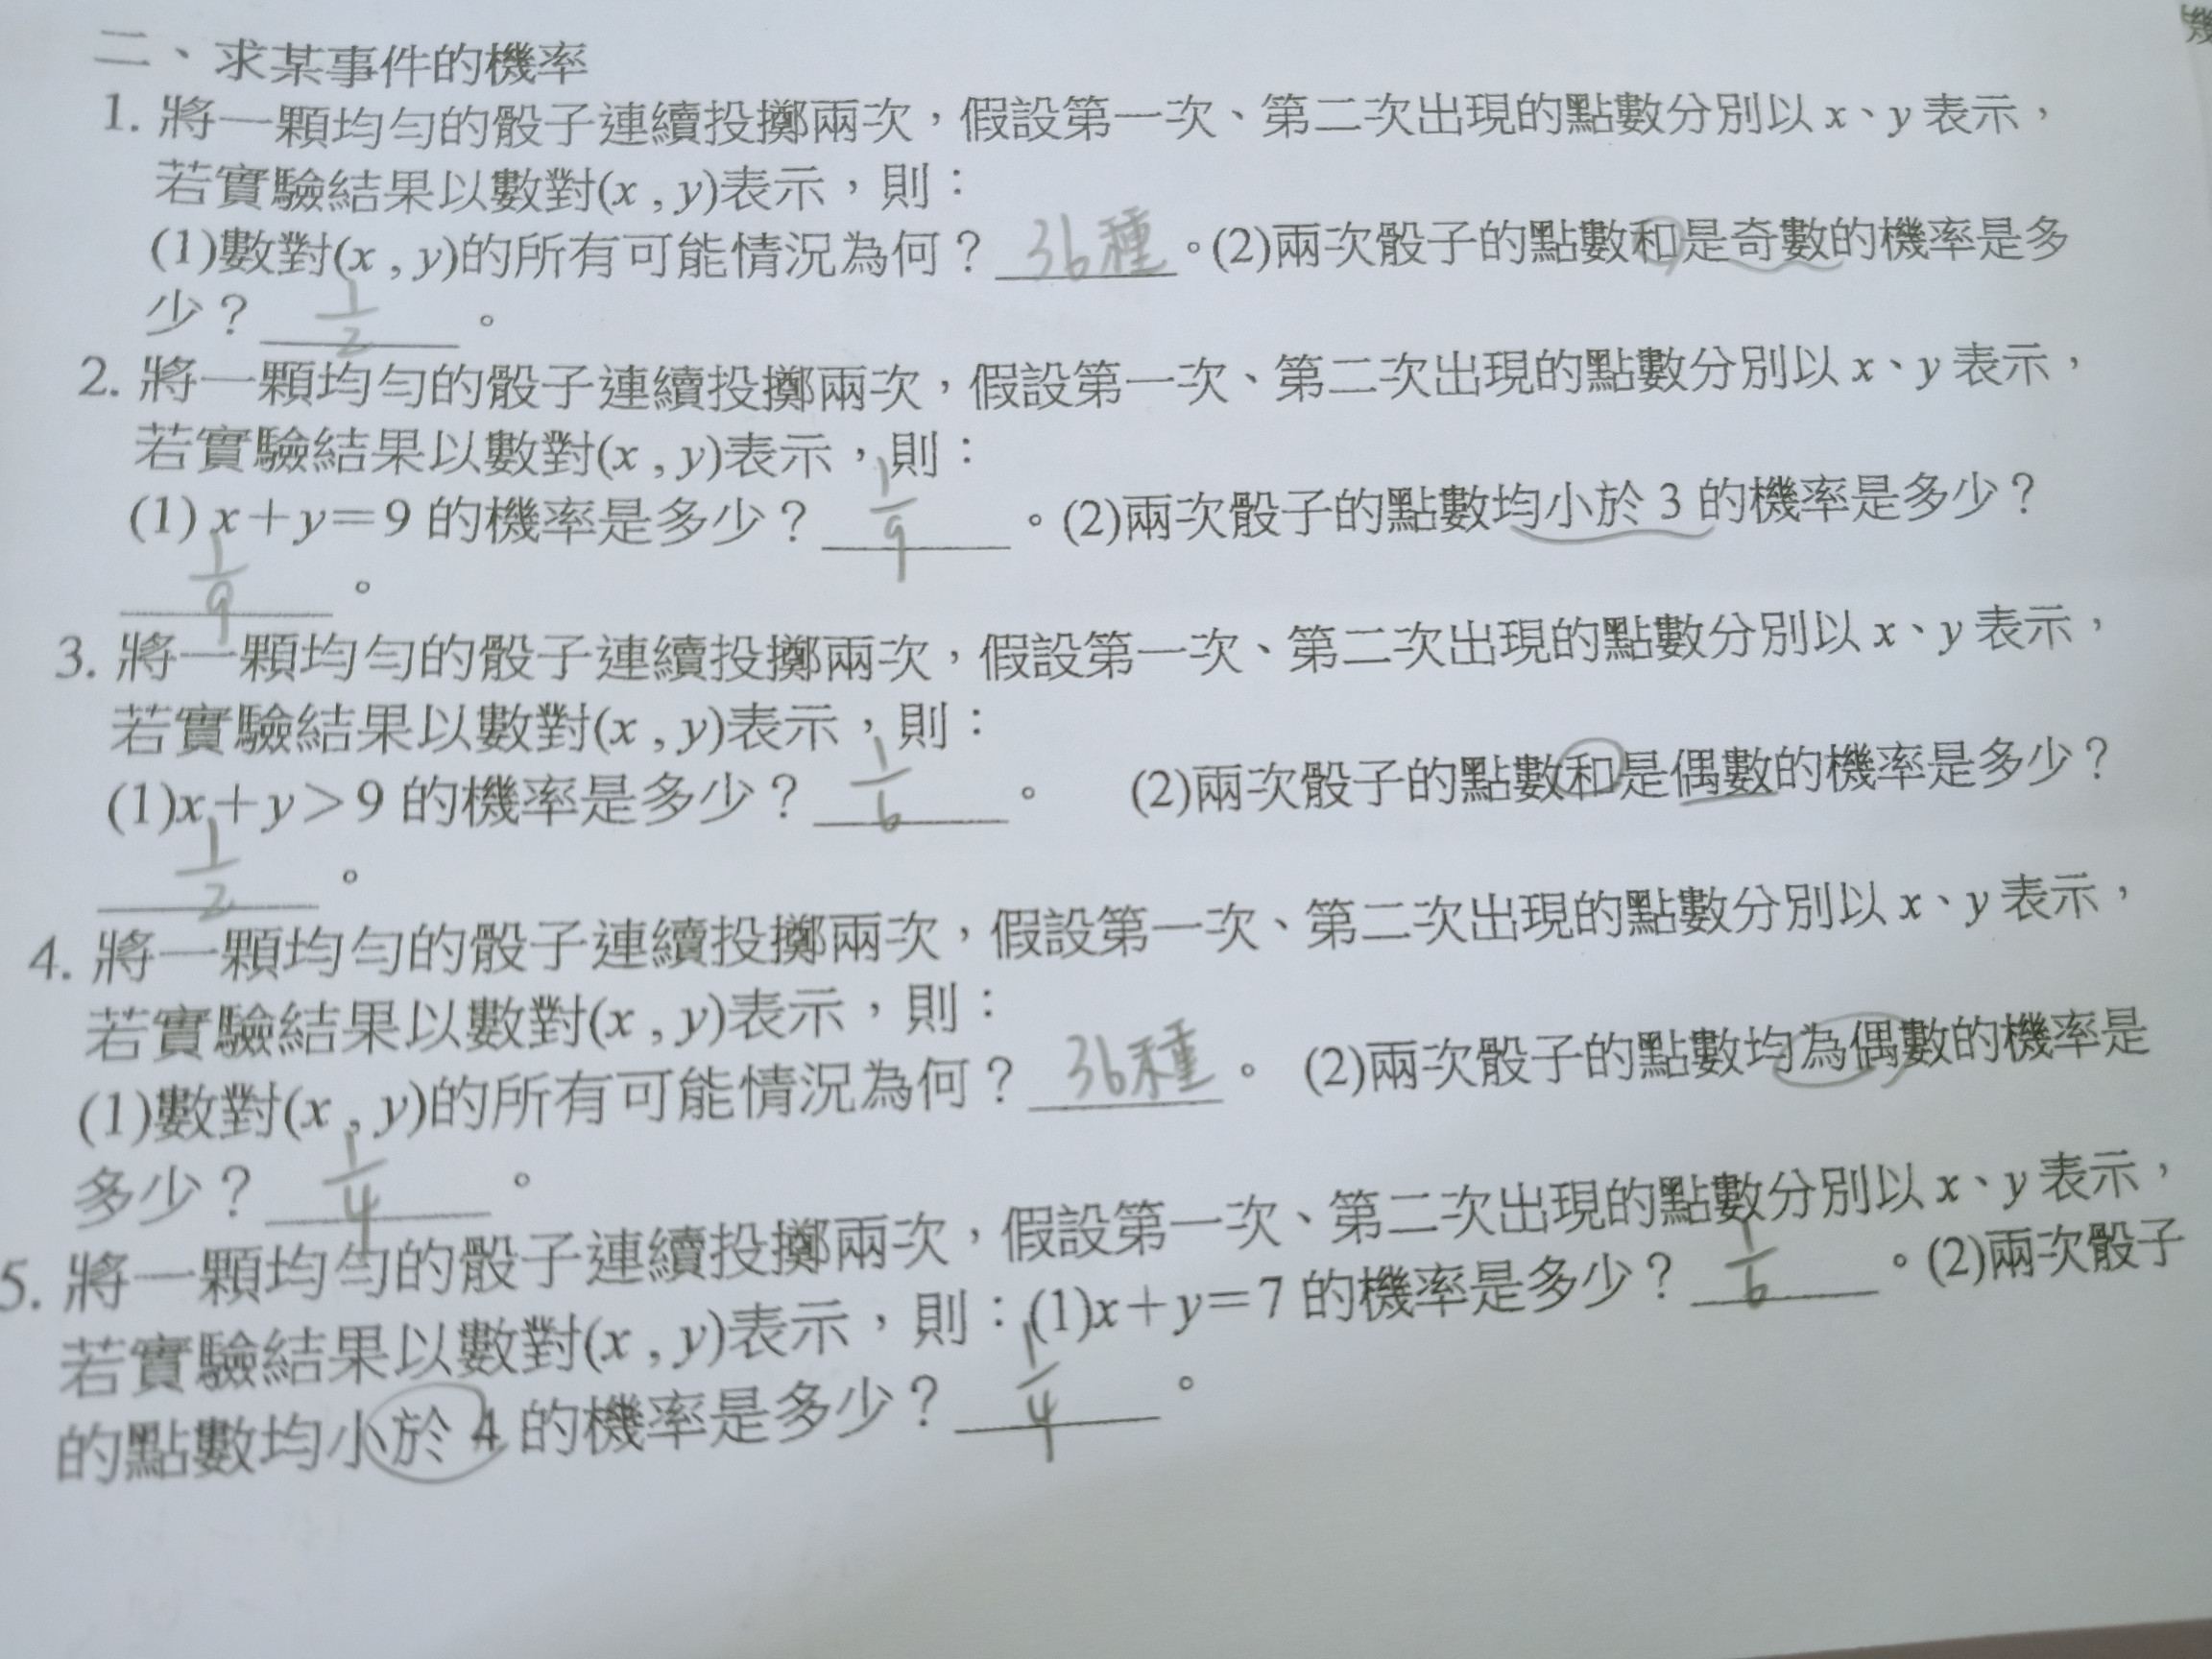 二、求某事件的機率
1. 將一顆均勻的骰子連續投擲兩次，假設第一次、第二次出現的點數分別以 x、y 表示，
若實驗結果以數對(x , y)表示，則：
(1)數對(x , y)的所有可能情況為何？ 36種 。(2)兩次骰子的點數和是奇數的機率是多
少？ 1/2 。
2. 將一顆均勻的骰子連續投擲兩次，假設第一次、第二次出現的點數分別以 x、y 表示，
若實驗結果以數對(x , y)表示，則：
(1) x＋y＝9 的機率是多少？ 1/9 。(2)兩次骰子的點數均小於 3 的機率是多少？
1/9 。
3. 將一顆均勻的骰子連續投擲兩次，假設第一次、第二次出現的點數分別以 x、y 表示，
若實驗結果以數對(x , y)表示，則：
(1)x＋y＞9 的機率是多少？ 1/6 。 (2)兩次骰子的點數和是偶數的機率是多少？
1/2 。
4. 將一顆均勻的骰子連續投擲兩次，假設第一次、第二次出現的點數分別以 x、y 表示，
若實驗結果以數對(x , y)表示，則：
(1)數對(x , y)的所有可能情況為何？ 36種 。 (2)兩次骰子的點數均為偶數的機率是
多少？ 1/4 。
5. 將一顆均勻的骰子連續投擲兩次，假設第一次、第二次出現的點數分別以 x、y 表示，
若實驗結果以數對(x , y)表示，則：(1)x＋y＝7 的機率是多少？ 1/6 。(2)兩次骰子
的點數均小於 4 的機率是多少？ 1/4 。